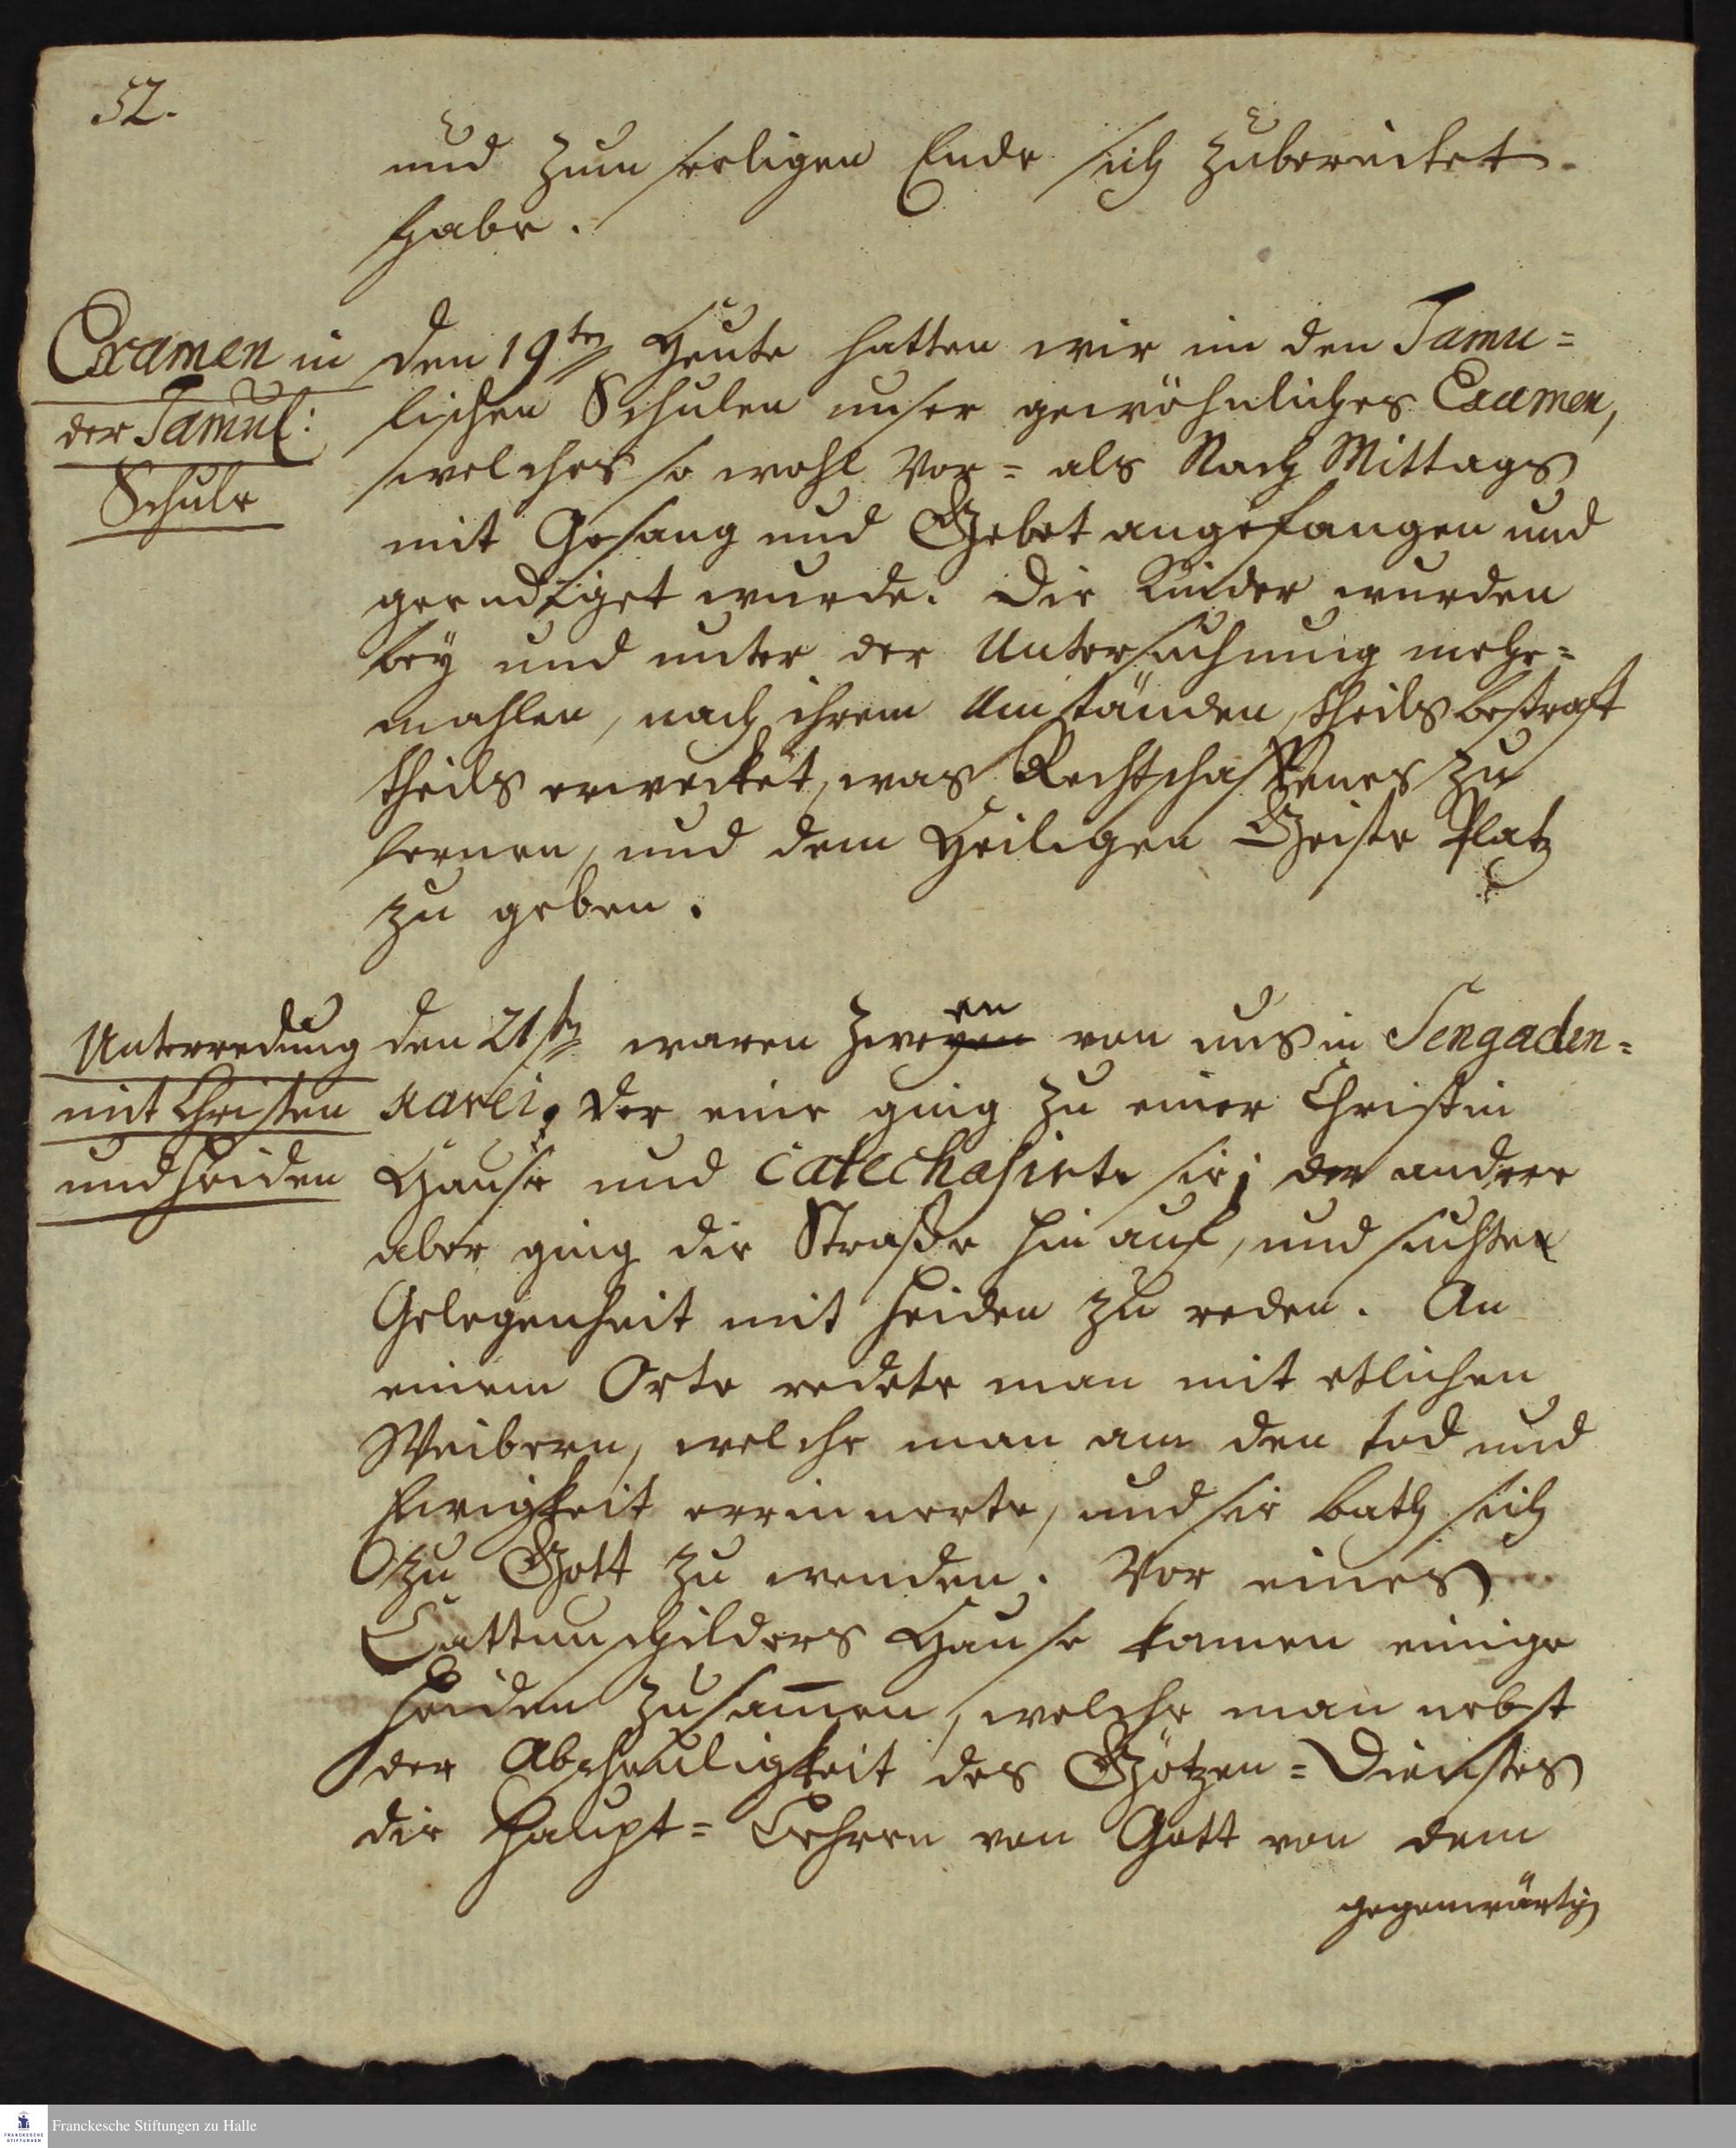 52.
und zum seeligen Ende sich zubereitet
habe.
Examen in
der Tamul:
Schule
den 19ten Heute hatten wir in den Tamu=
lischen Schulen unser gewöhnliches Examen,
welches so wohl Vor= als Nach Mittags
mit Gesang und Gebet angefangen und
geendiget wurde. Die Kinder wurden
bey und unter der Untersuchung mehr=
mahlen, nach ihrem Umständen, theils bestraft
theils erwecket, was Rechtschaffenes zu
lernen, und dem Heiligen Geiste Platz
zu geben.
Unterredung
mit Christen
und Heiden
den 21st waren zweyen en von uns in Sengaden=
karei, der eine ging zu einer Christin
Hause und catechasirte sie; der andere
aber ging die Straße hinauf, und suchte
Gelegenheit mit Heiden zu reden. An
einem Orte redete man mit etlichen
Weibern, welche man an den Tod und
Ewigkeit errinnerte, und sie bath sich
zu Gott zu wenden. Vor eines
Cattunschilders Hause kamen einige
Heiden zusam̄en, welche man nebst
der Abscheuligkeit des Götzen=Dienstes
die Haupt=Lehren von Gott von dem
gegenwärtig
Franckesche Stiftungen zu Halle
FRANCKESCHE
STIFTUNGEN